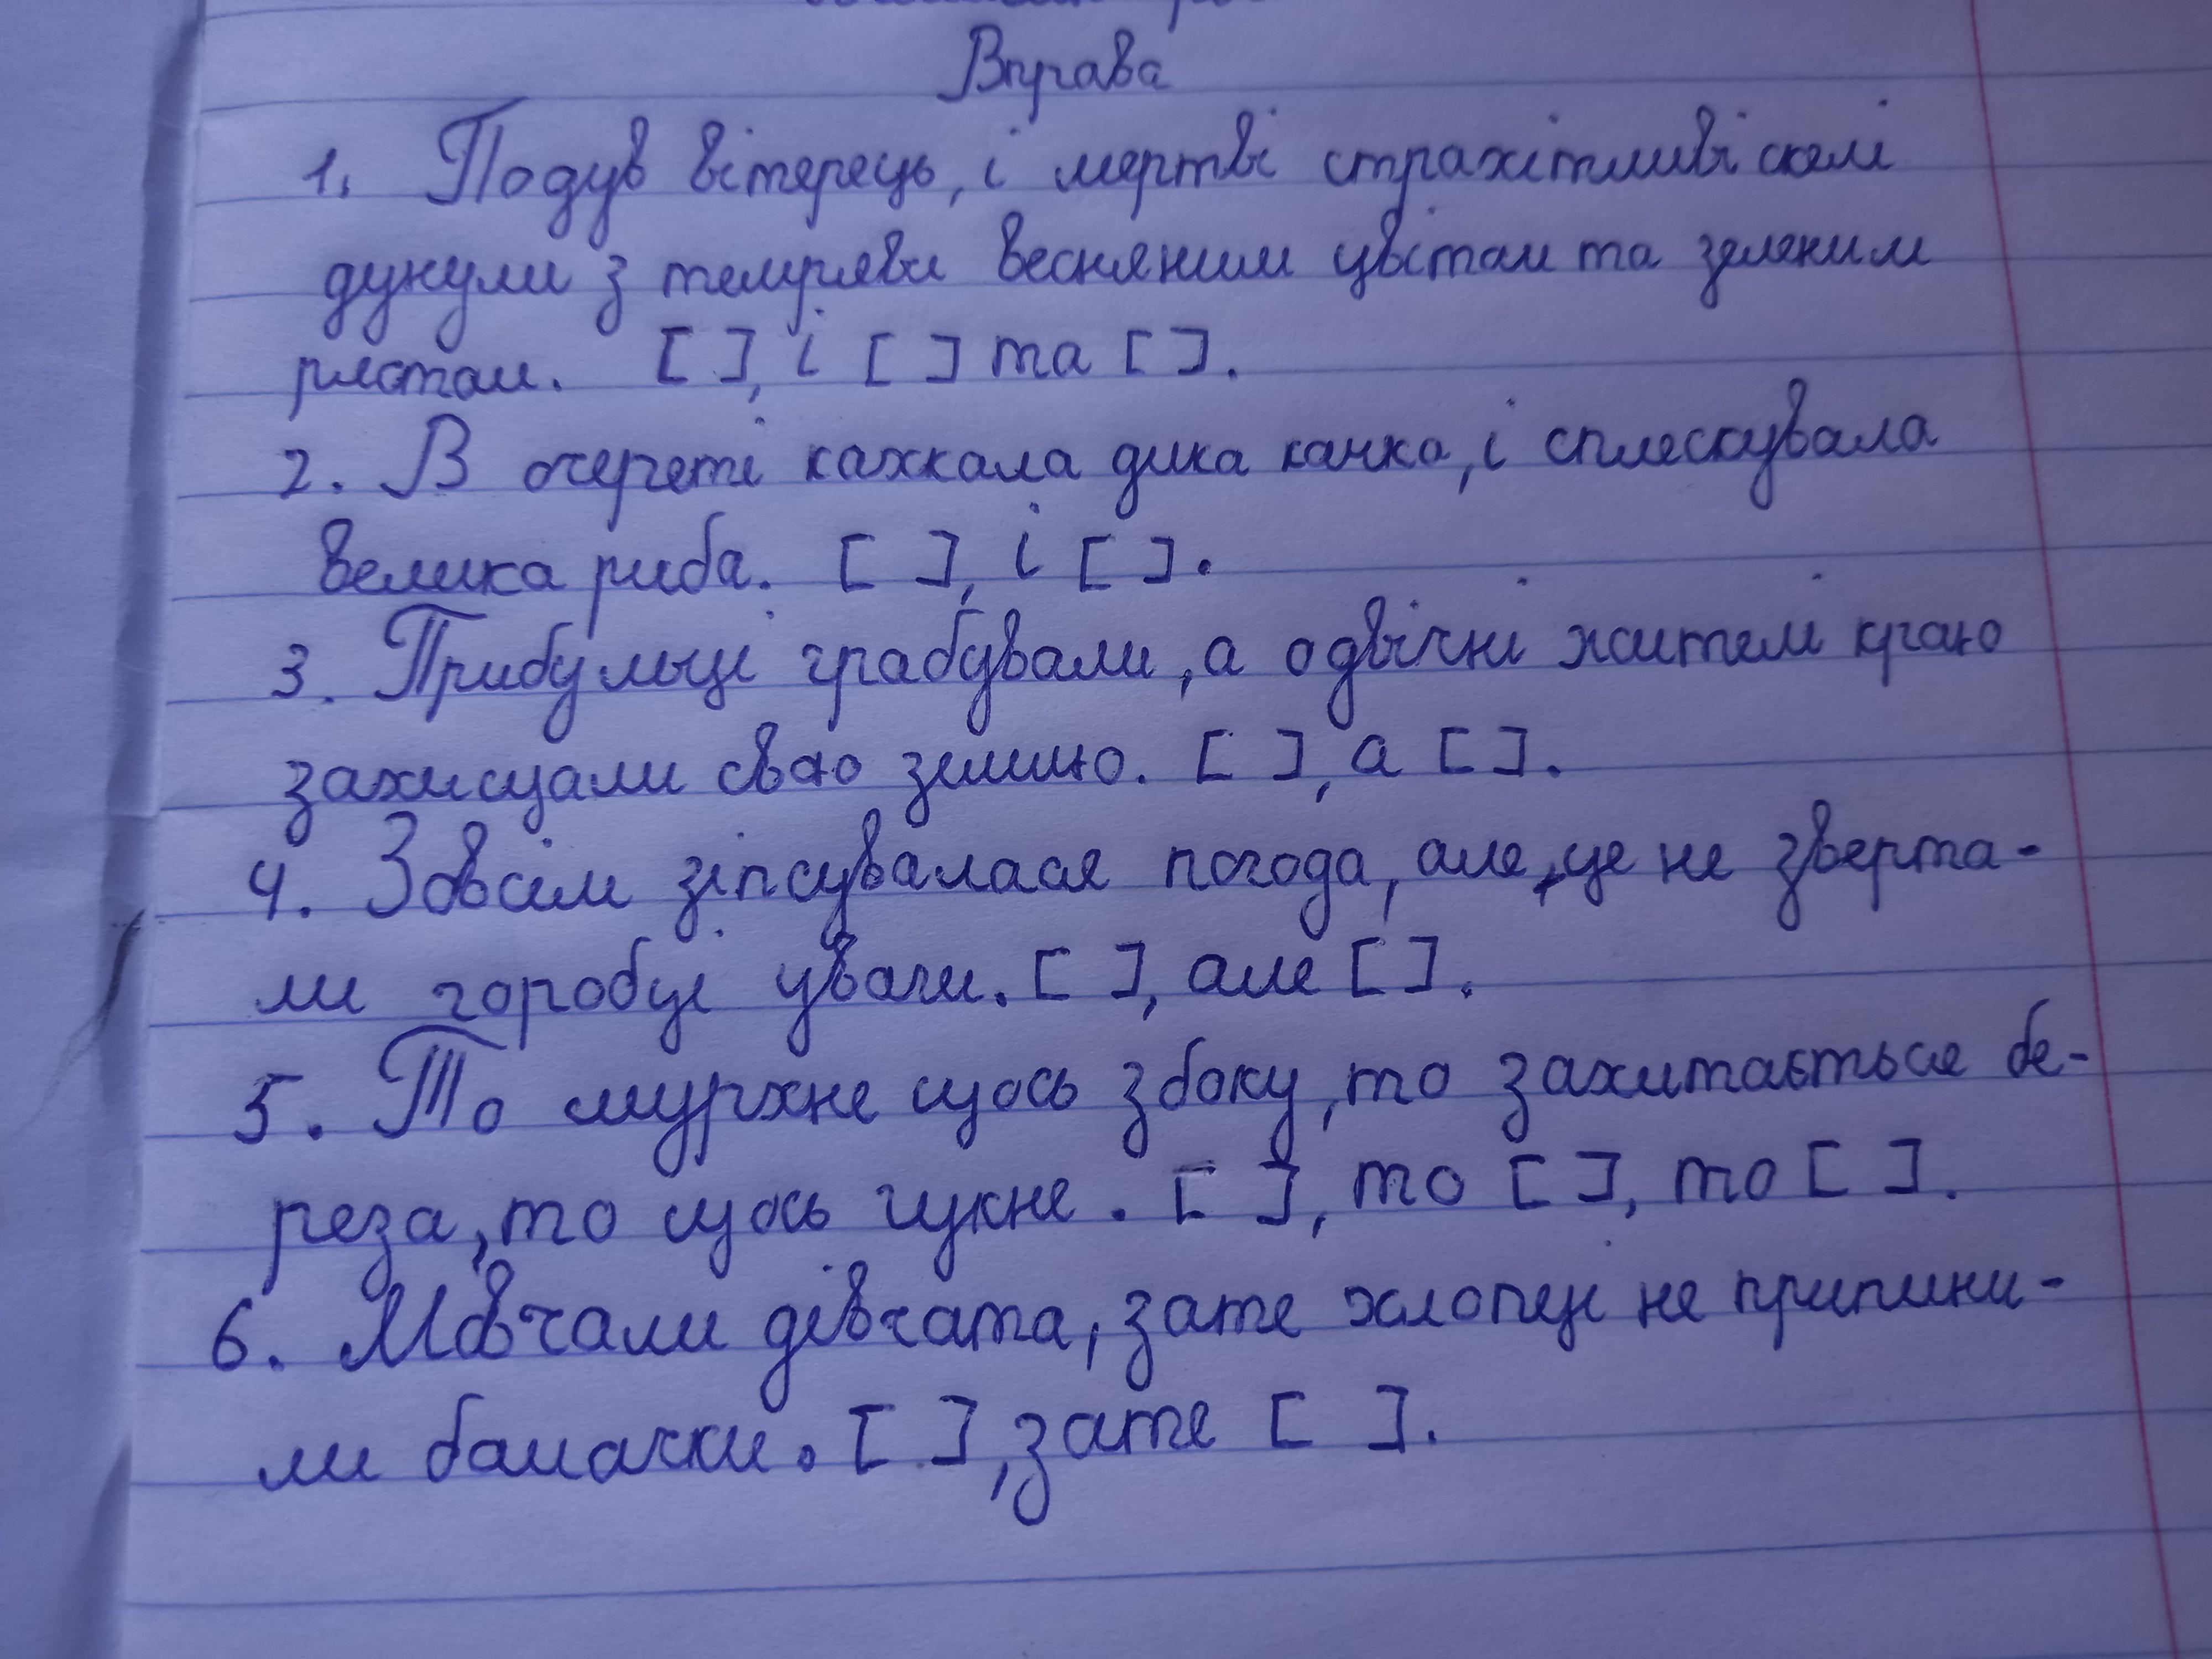 Вправа
1. Подув вітерець, і мертві страхітливі скелі
дунули з темряви весняним цвітом та зеленим
рястом. [ ], і [ ] та [ ].
2. В очереті кахкала дика качка, і сплескувала
велика риба. [ ], і [ ].
3. Прибульці грабували, а одвічні жителі краю
захищали свою землю. [ ], а [ ].
4. Зовсім зіпсувалася погода, але, це не зверта-
ли горобці уваги. [ ], але [ ].
5. То мурхне щось збоку, то захитається бе-
реза, то щось гукне. [ ], то [ ], то [ ].
6. Мовчали дівчата, зате хлопці не припини-
ли балачки. [ ], зате [ ].